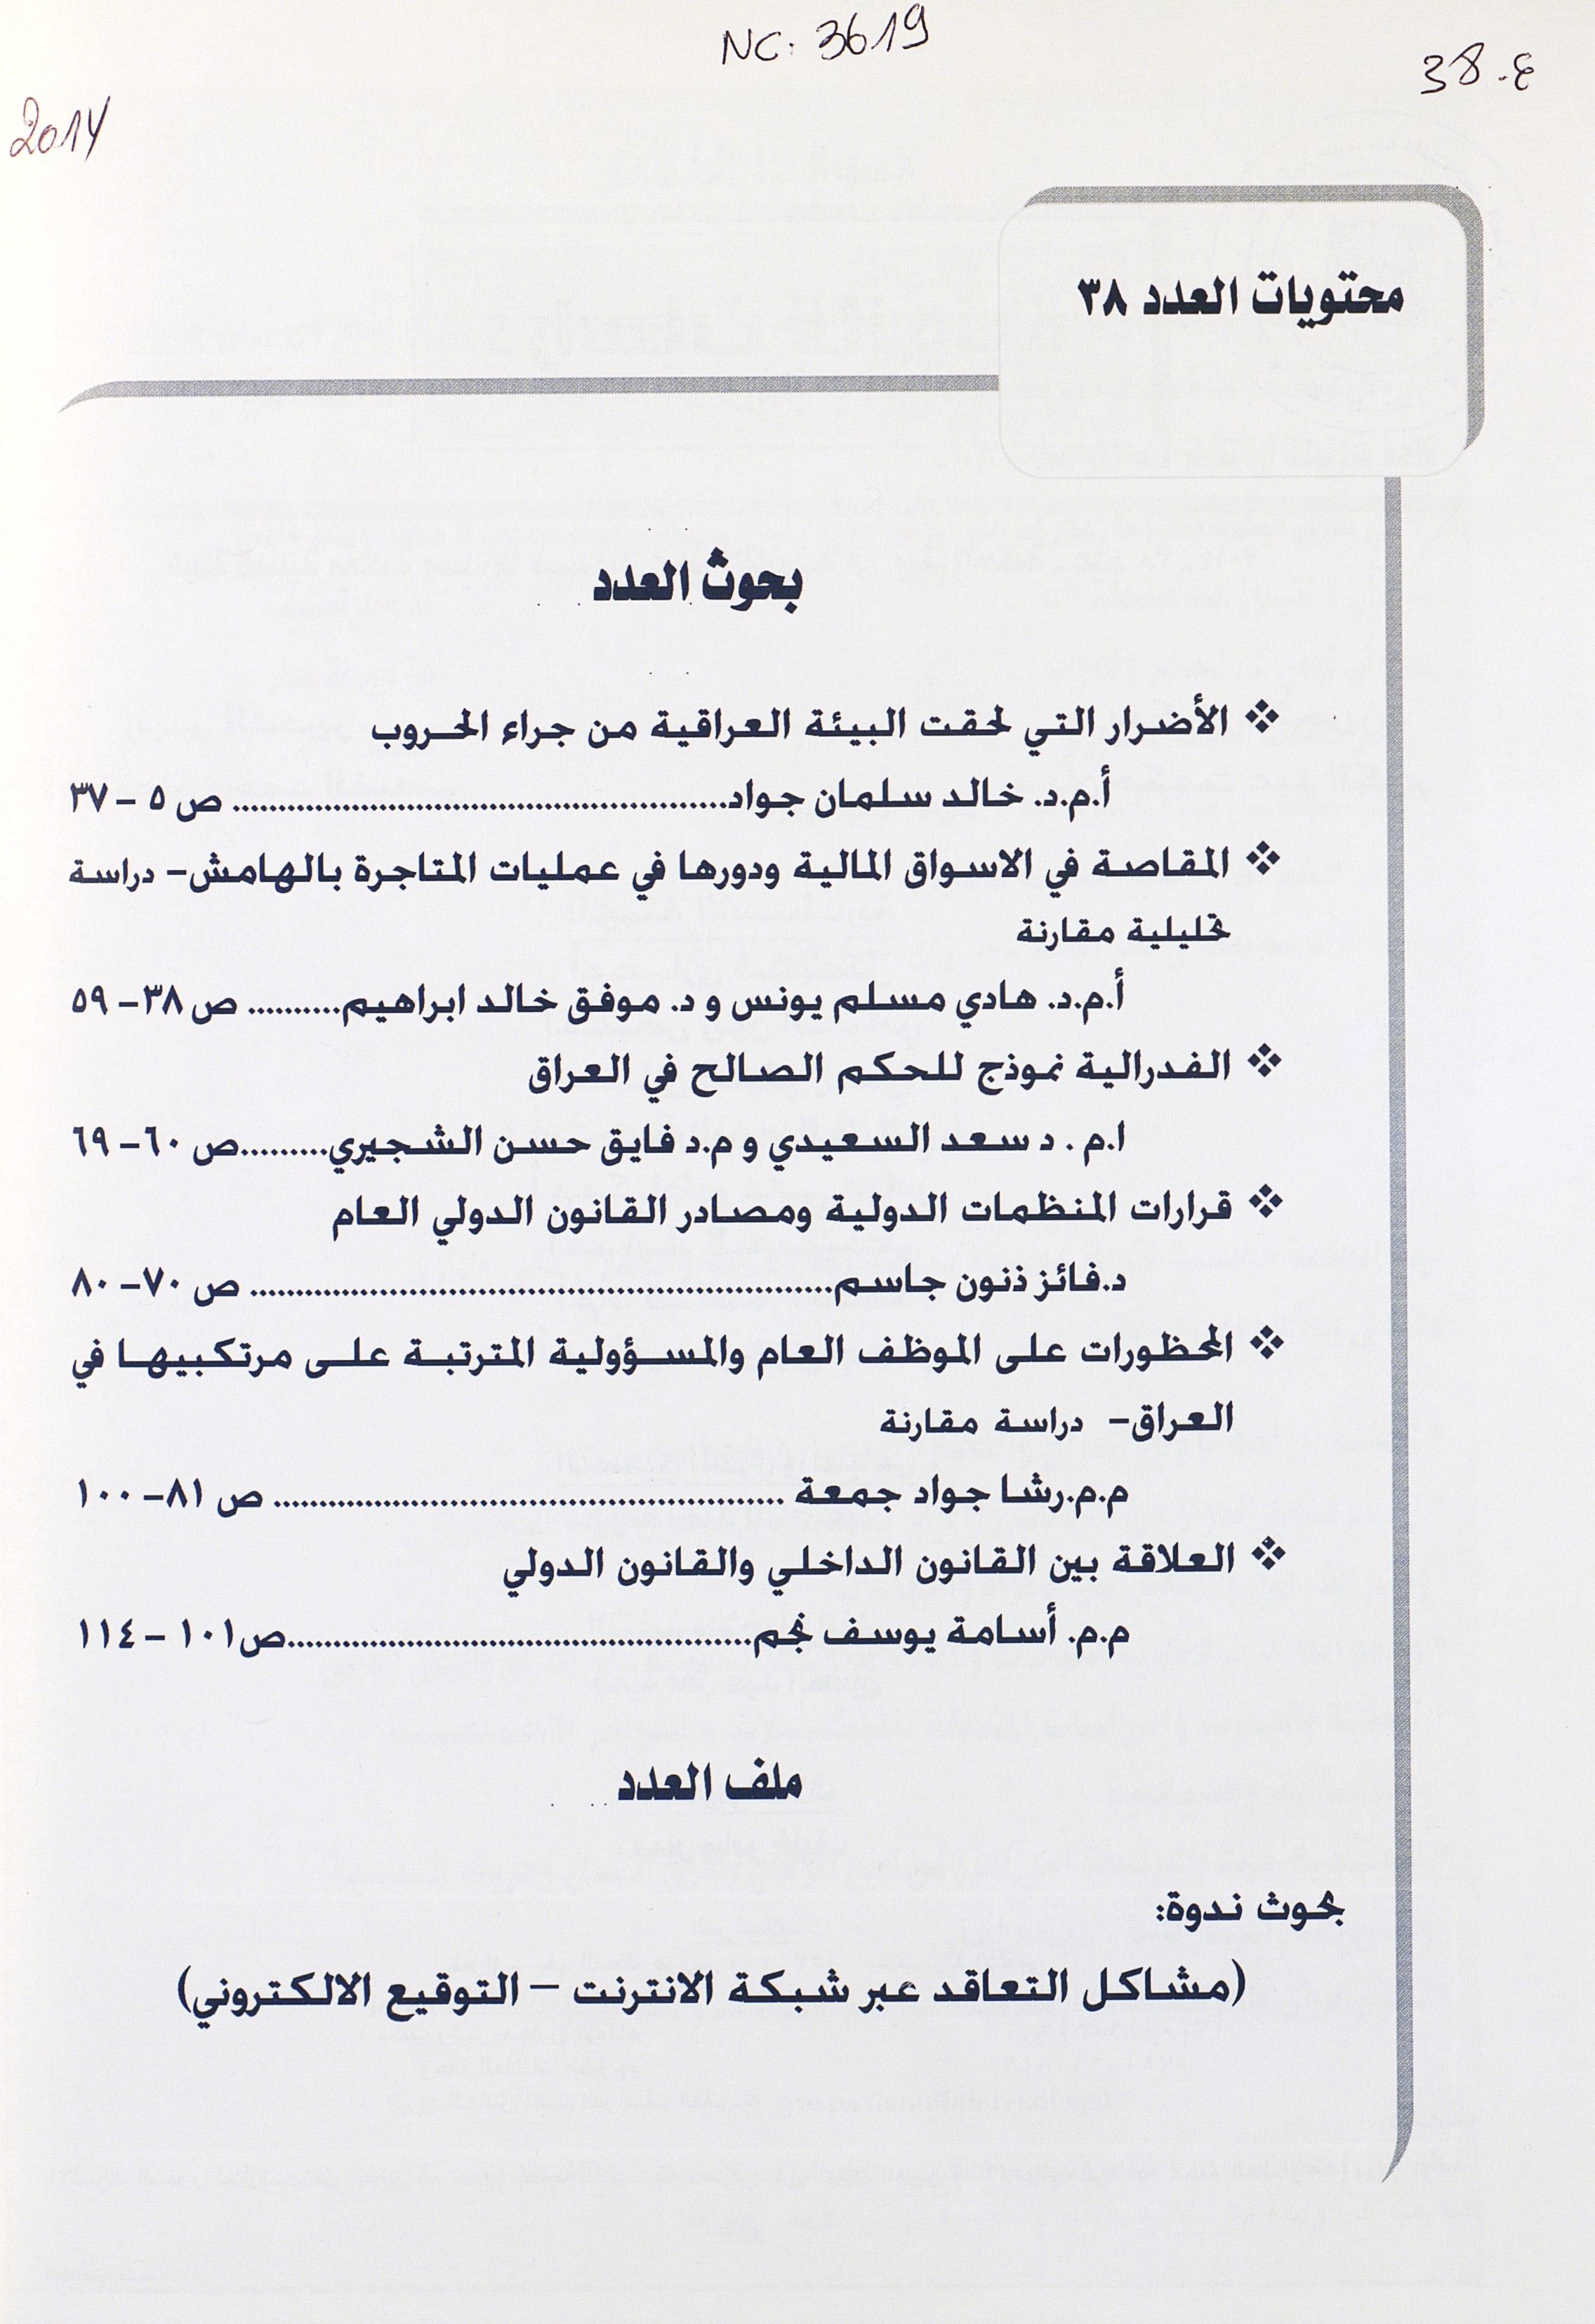 NC. 3619
38 .ع
2014
محتويات العدد ٣٨
بحوث العدد
❖ الأضرار التي لحقت البيئة العراقية من جراء الحروب
أ.م.د. خالد سلمان جواد....................................................... ص ٥ – ٣٧
❖ المقاصة في الاسواق المالية ودورها في عمليات المتاجرة بالهامش– دراسة
تحليلية مقارنة
أ.م.د. هادي مسلم يونس و د. موفق خالد ابراهيم.......... ص ٣٨– ٥٩
❖ الفدرالية نموذج للحكم الصالح في العراق
ا.م . د سعد السعيدي و م.د فايق حسن الشجيري.........ص ٦٠– ٦٩
❖ قرارات المنظمات الدولية ومصادر القانون الدولي العام
د.فائز ذنون جاسم................................................................. ص ٧٠– ٨٠
❖ المحظورات على الموظف العام والمسؤولية المترتبة على مرتكبيها في
العراق– دراسة مقارنة
م.م.رشا جواد جمعة ......................................................... ص ٨١– ١٠٠
❖ العلاقة بين القانون الداخلي والقانون الدولي
م.م. أسامة يوسف نجم....................................................ص١٠١ – ١١٤
ملف العدد
بحوث ندوة:
(مشاكل التعاقد عبر شبكة الانترنت – التوقيع الالكتروني)